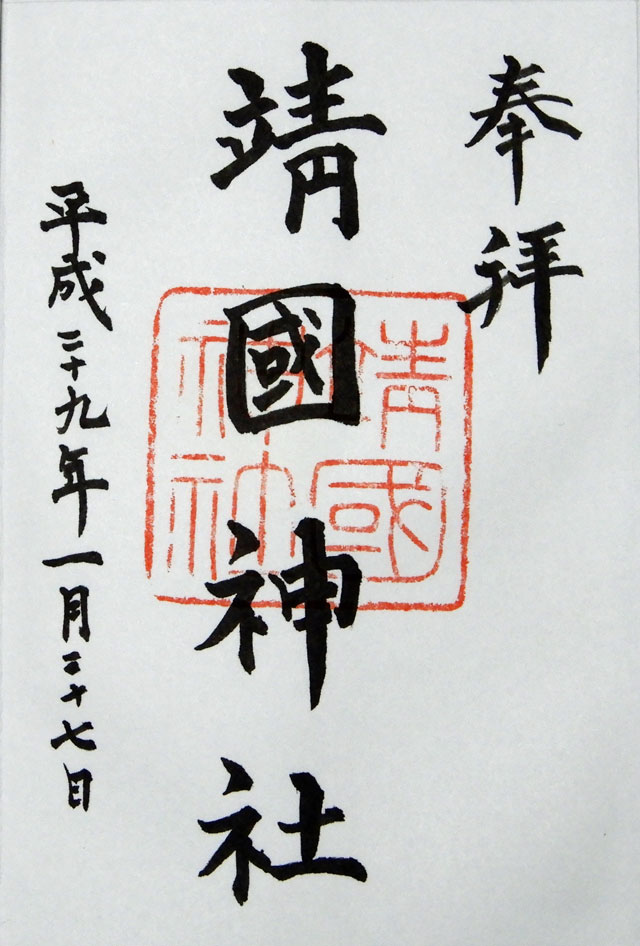 奉拝
靖國神社
靖國神社
平成二十九年一月二十七日